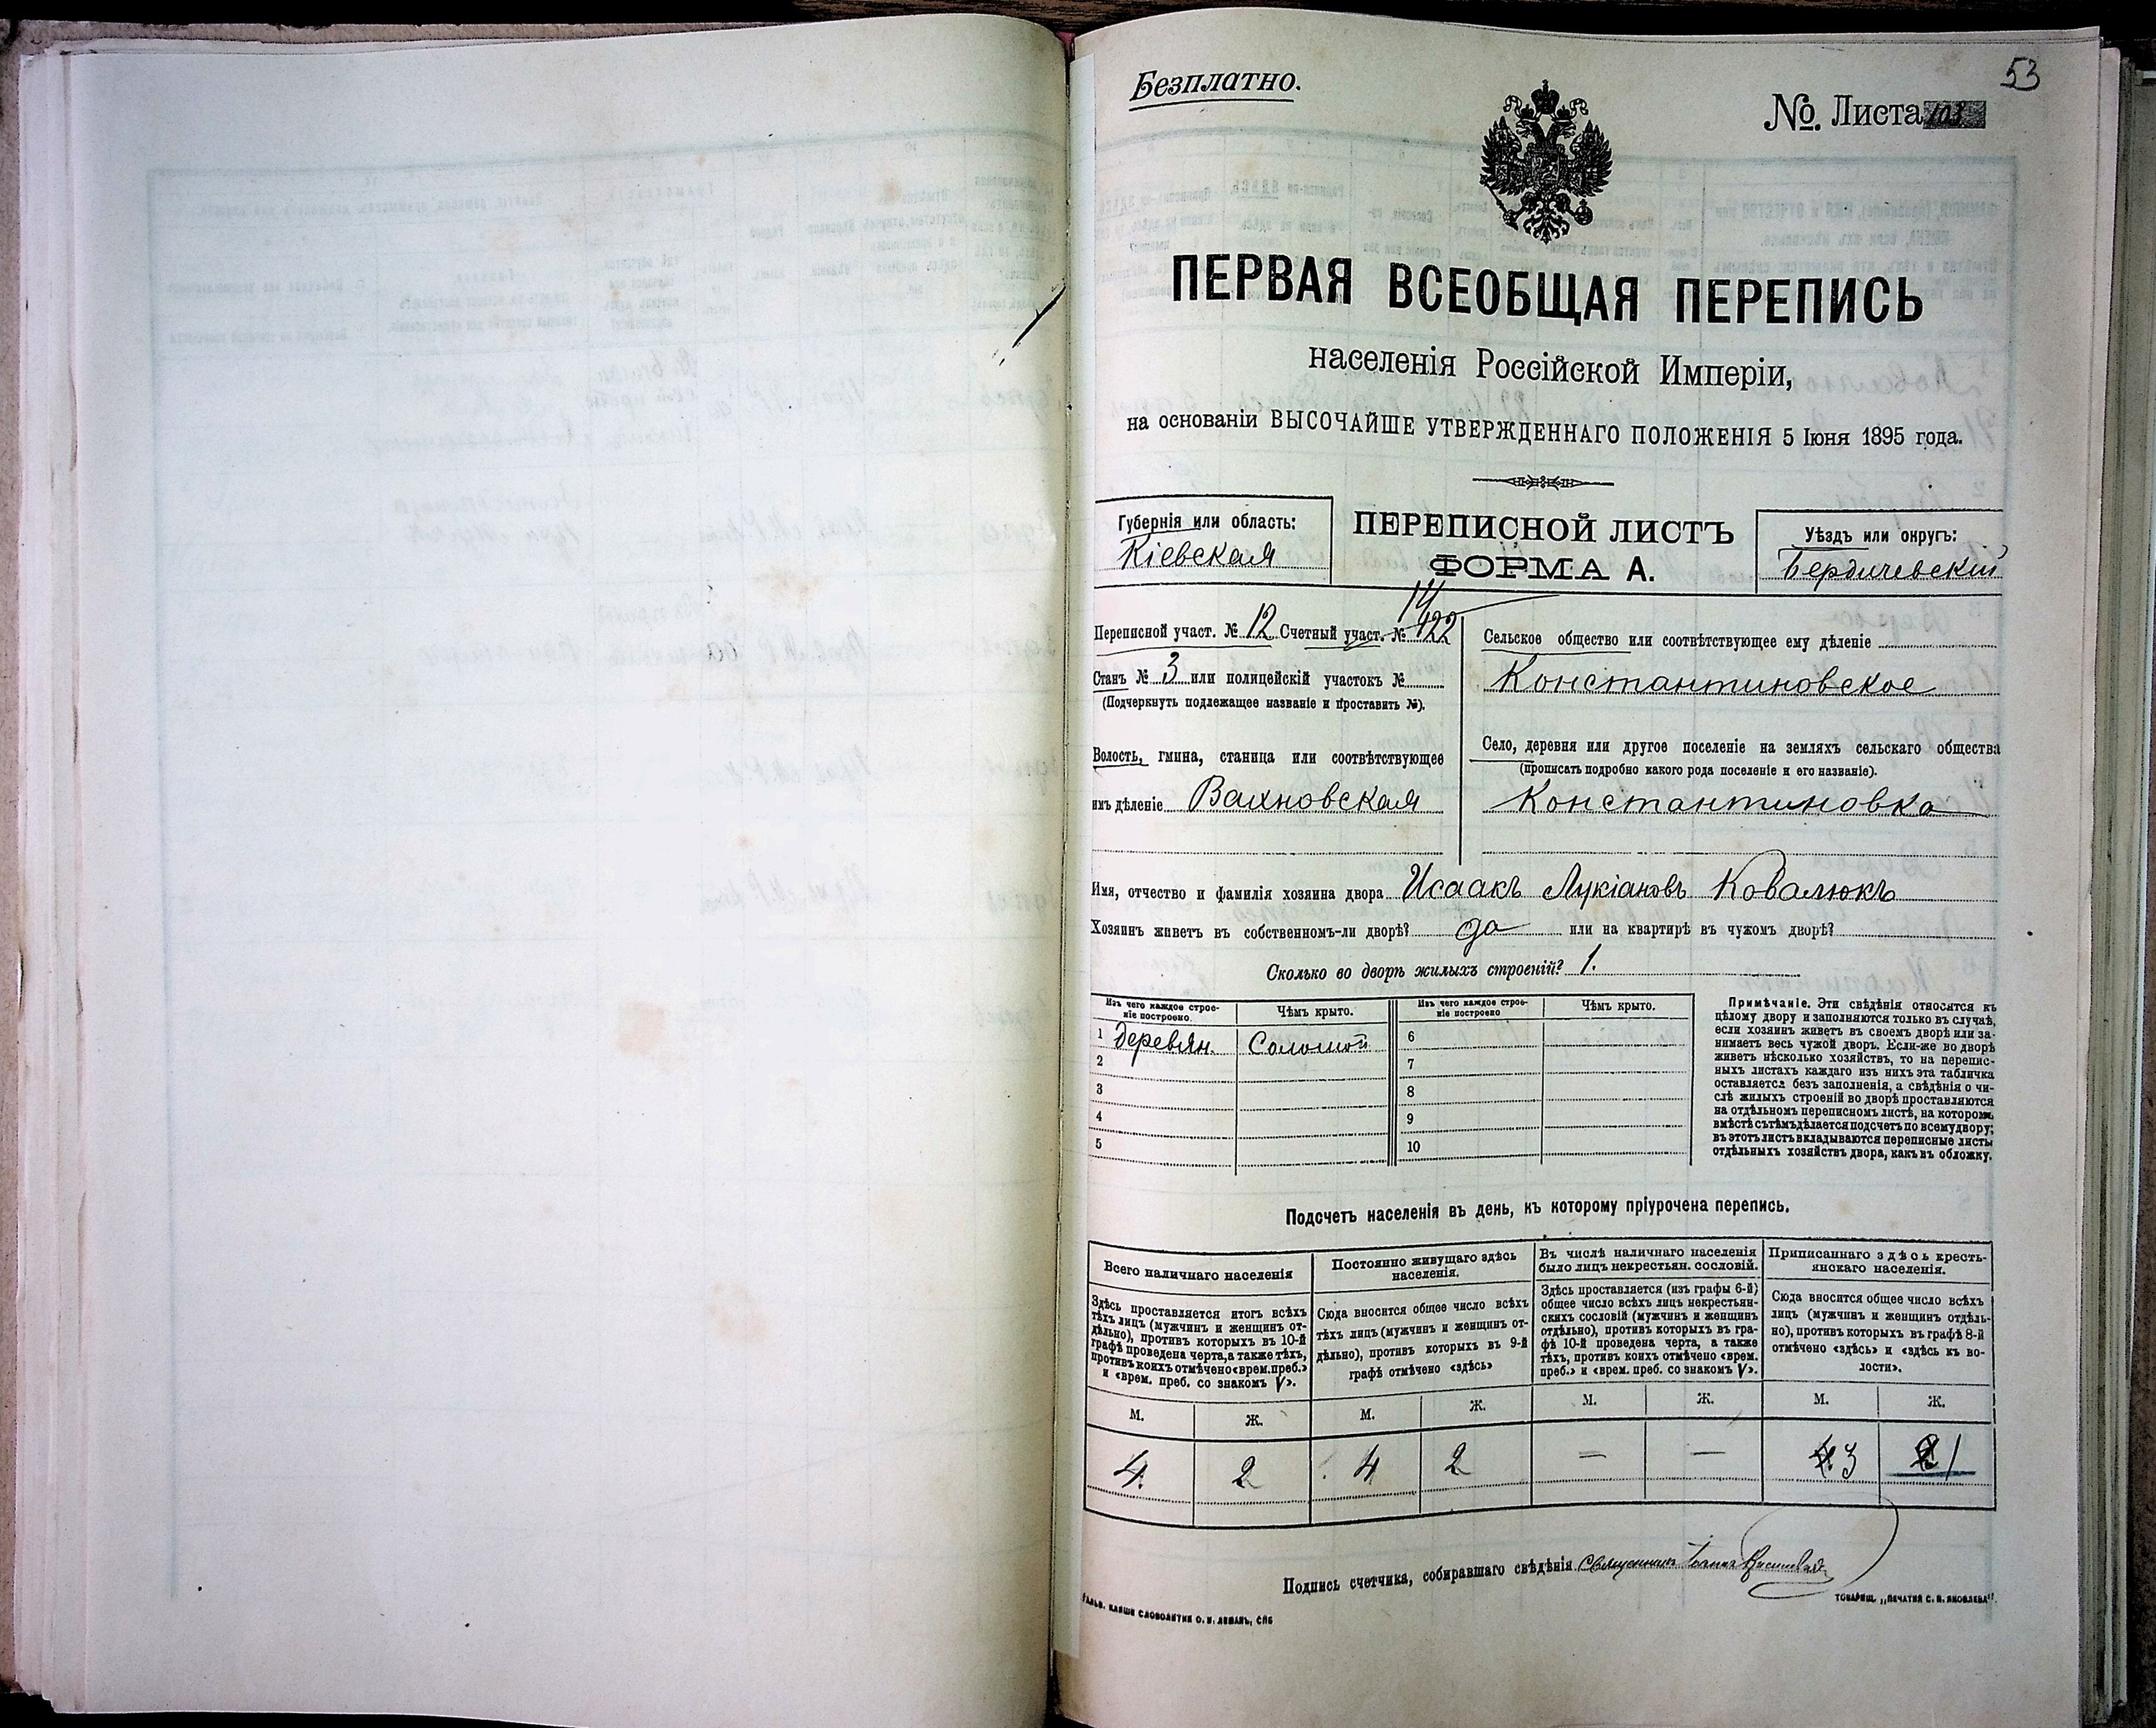 53
Безплатно.
№. Листа
ПЕРВАЯ ВСЕОБЩАЯ ПЕРЕПИСЬ
населенія Россійской Имперіи,
на основаніи ВЫСОЧАЙШЕ УТВЕРЖДЕННАГО ПОЛОЖЕНІЯ 5 Іюня 1895 года.
Губернія или область:
Кіевская
ПЕРЕПИСНОЙ ЛИСТЪ
ФОРМА А.
Уѣздъ или округъ:
Бердичевскій
Переписной участ. № 12 Счетный участ. №
Станъ № 3 или полицейскій участокъ №
(Подчеркнуть подлежащее названіе и проставить №).
Волость, гмина, станица или соотвѣтствующее
имъ дѣленіе Вахновская
Сельское общество или соотвѣтствующее ему дѣленіе
Константиновское
Село, деревня или другое поселеніе на земляхъ сельскаго общества
(прописать подробно какого рода поселеніе и его названіе).
Константиновка
Имя, отчество и фамилія хозяина двора Исаакъ Лукіановъ Ковалюкъ
Хозяинъ живетъ въ собственномъ-ли дворѣ? да или на квартирѣ въ чужомъ дворѣ?
Сколько во дворѣ жилыхъ строеній? 1.
Изъ чего каждое строе-
ніе построено.
Чѣмъ крыто.
Изъ чего каждое строе-
ніе построено
Чѣмъ крыто.
1 деревян. Соломой 6
2 7
3 8
4 9
5 10
Примѣчаніе. Эти свѣдѣнія относятся къ
цѣлому двору и заполняются только въ случаѣ,
если хозяинъ живетъ въ своемъ дворѣ или за-
нимаетъ весь чужой дворъ. Если-же во дворѣ
живетъ нѣсколько хозяйствъ, то на перепис-
ныхъ листахъ каждаго изъ нихъ эта табличка
оставляется безъ заполненія, а свѣдѣнія о чи-
слѣ жилыхъ строеній во дворѣ проставляются
на отдѣльномъ переписномъ листѣ, на которомъ
вмѣстѣ съ тѣмъ дѣлается подсчетъ по всему двору;
въ этотъ листъ вкладываются переписные листы
отдѣльныхъ хозяйствъ двора, какъ въ обложку.
Подсчетъ населенія въ день, къ которому пріурочена перепись.
Всего наличнаго населенія
Здѣсь проставляется итогъ всѣхъ
тѣхъ лицъ (мужчинъ и женщинъ от-
дѣльно), противъ которыхъ въ 10-й
графѣ проведена черта, а также тѣхъ,
противъ коихъ отмѣчено «врем. преб.»
и «врем. преб. со знакомъ V».
Постоянно живущаго здѣсь
населенія.
Сюда вносится общее число всѣхъ
тѣхъ лицъ (мужчинъ и женщинъ от-
дѣльно), противъ которыхъ въ 9-й
графѣ отмѣчено «здѣсь»
Въ числѣ наличнаго населенія
было лицъ некрестьян. сословій.
Здѣсь проставляется (изъ графы 6-й)
общее число всѣхъ лицъ некрестьян-
скихъ сословій (мужчинъ и женщинъ
отдѣльно), противъ которыхъ въ гра-
фѣ 10-й проведена черта, а также
тѣхъ, противъ коихъ отмѣчено «врем.
преб.» и «врем. преб. со знакомъ V».
Приписаннаго здѣсь кресть-
янскаго населенія.
Сюда вносится общее число всѣхъ
лицъ (мужчинъ и женщинъ отдѣль-
но), противъ которыхъ въ графѣ 8-й
отмѣчено «здѣсь» и «здѣсь къ во-
лости».
М. Ж. М. Ж. М. Ж. М. Ж.
4. 2 4 2 — — 3 1
Подпись счетчика, собиравшаго свѣдѣнія Священникъ
ГАЛЬВ. КЛИШЕ СЛОВОЛИТНИ О. И. ЛЕМАНЪ, СПБ
ТОВАРИЩ. „ПЕЧАТНЯ С. П. ЯКОВЛЕВА".